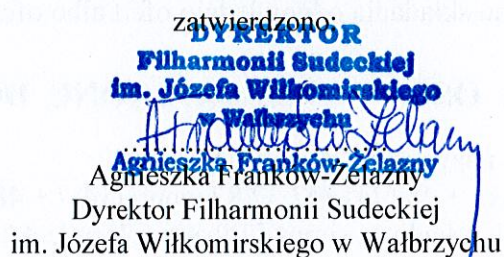 zatwierdzono:
DYREKTOR
Filharmonii Sudeckiej
im. Józefa Wiłkomirskiego
w Wałbrzychu
Agnieszka Franków-Żelazny
Agnieszka Franków-Żelazny
Dyrektor Filharmonii Sudeckiej
im. Józefa Wiłkomirskiego w Wałbrzychu